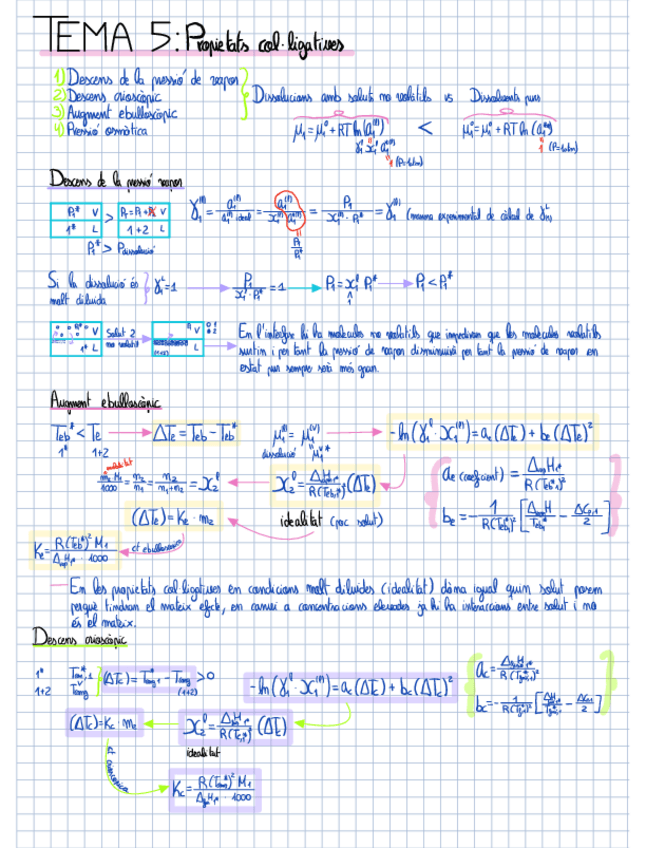 TEMA 5: Propietats col·ligatives
1) Descens de la pressió de vapor
2) Descens crioscòpic
3) Augment ebulloscòpic
4) Pressió osmòtica
Dissolucions amb soluts no volàtils vs Dissolvents purs
μ₁ = μ₁° + RT ln(a₁⁽ˡ⁾) < μ₁° = μ₁° + RT ln(a₁⁽ˡ⁾)
Descens de la pressió vapor
P₁* V
1* L
>
V
1+2 L
P₁* > Pdissolució
(manera experimental de càlcul de γ₁)
Si la dissolució és
molt diluïda
γ₁ᴸ = 1
P₁/(x₁ˡ · P₁*) = 1
P₁ = x₁ˡ P₁*
P₁ < P₁*
V
1* L
Solut 2
no volàtil
V
L
En l'interfície hi ha molècules no volàtils que impedeixen que les molècules volàtils
surtin i per tant la pressió de vapor disminuirà per tant la pressió de vapor en
estat pur sempre serà més gran.
Augment ebulloscòpic
Teb* < Te
1* 1+2
ΔTe = Teb - Teb*
μ₁⁽ˡ⁾ = μ₁⁽ᵛ⁾
dissolució
-ln(γ₁ˡ · x₁⁽ˡ⁾) = ae(ΔTe) + be(ΔTe)²
molalitat
m₂ M₁/1000 = n₂/n₁ = n₂/(n₁+n₂) = x₂ˡ
x₂ˡ = ΔvapH₁*/R(Teb,1*)² (ΔTe)
ae (coeficient) = ΔvapH₁*/R(Teb,1*)²
(ΔTe) = Ke · m₂
idealitat (poc solut)
Ke = R(Teb*)² M₁/(ΔvapH₁* · 1000)
ct ebulloscòpica
En les propietats col·ligatives en condicions molt diluïdes (idealitat) dóna igual quin solut posem
perquè tindran el mateix efecte, en canvi a concentracions elevades ja hi ha interaccions entre solut i no
és el mateix.
Descens crioscòpic
1*
1+2
>0
(1+2)
-ln(γ₁ˡ · x₁⁽ˡ⁾) = ac(ΔTc) + bc(ΔTc)²
(ΔTc) = Kc · m₂
idealitat
ct crioscòpica